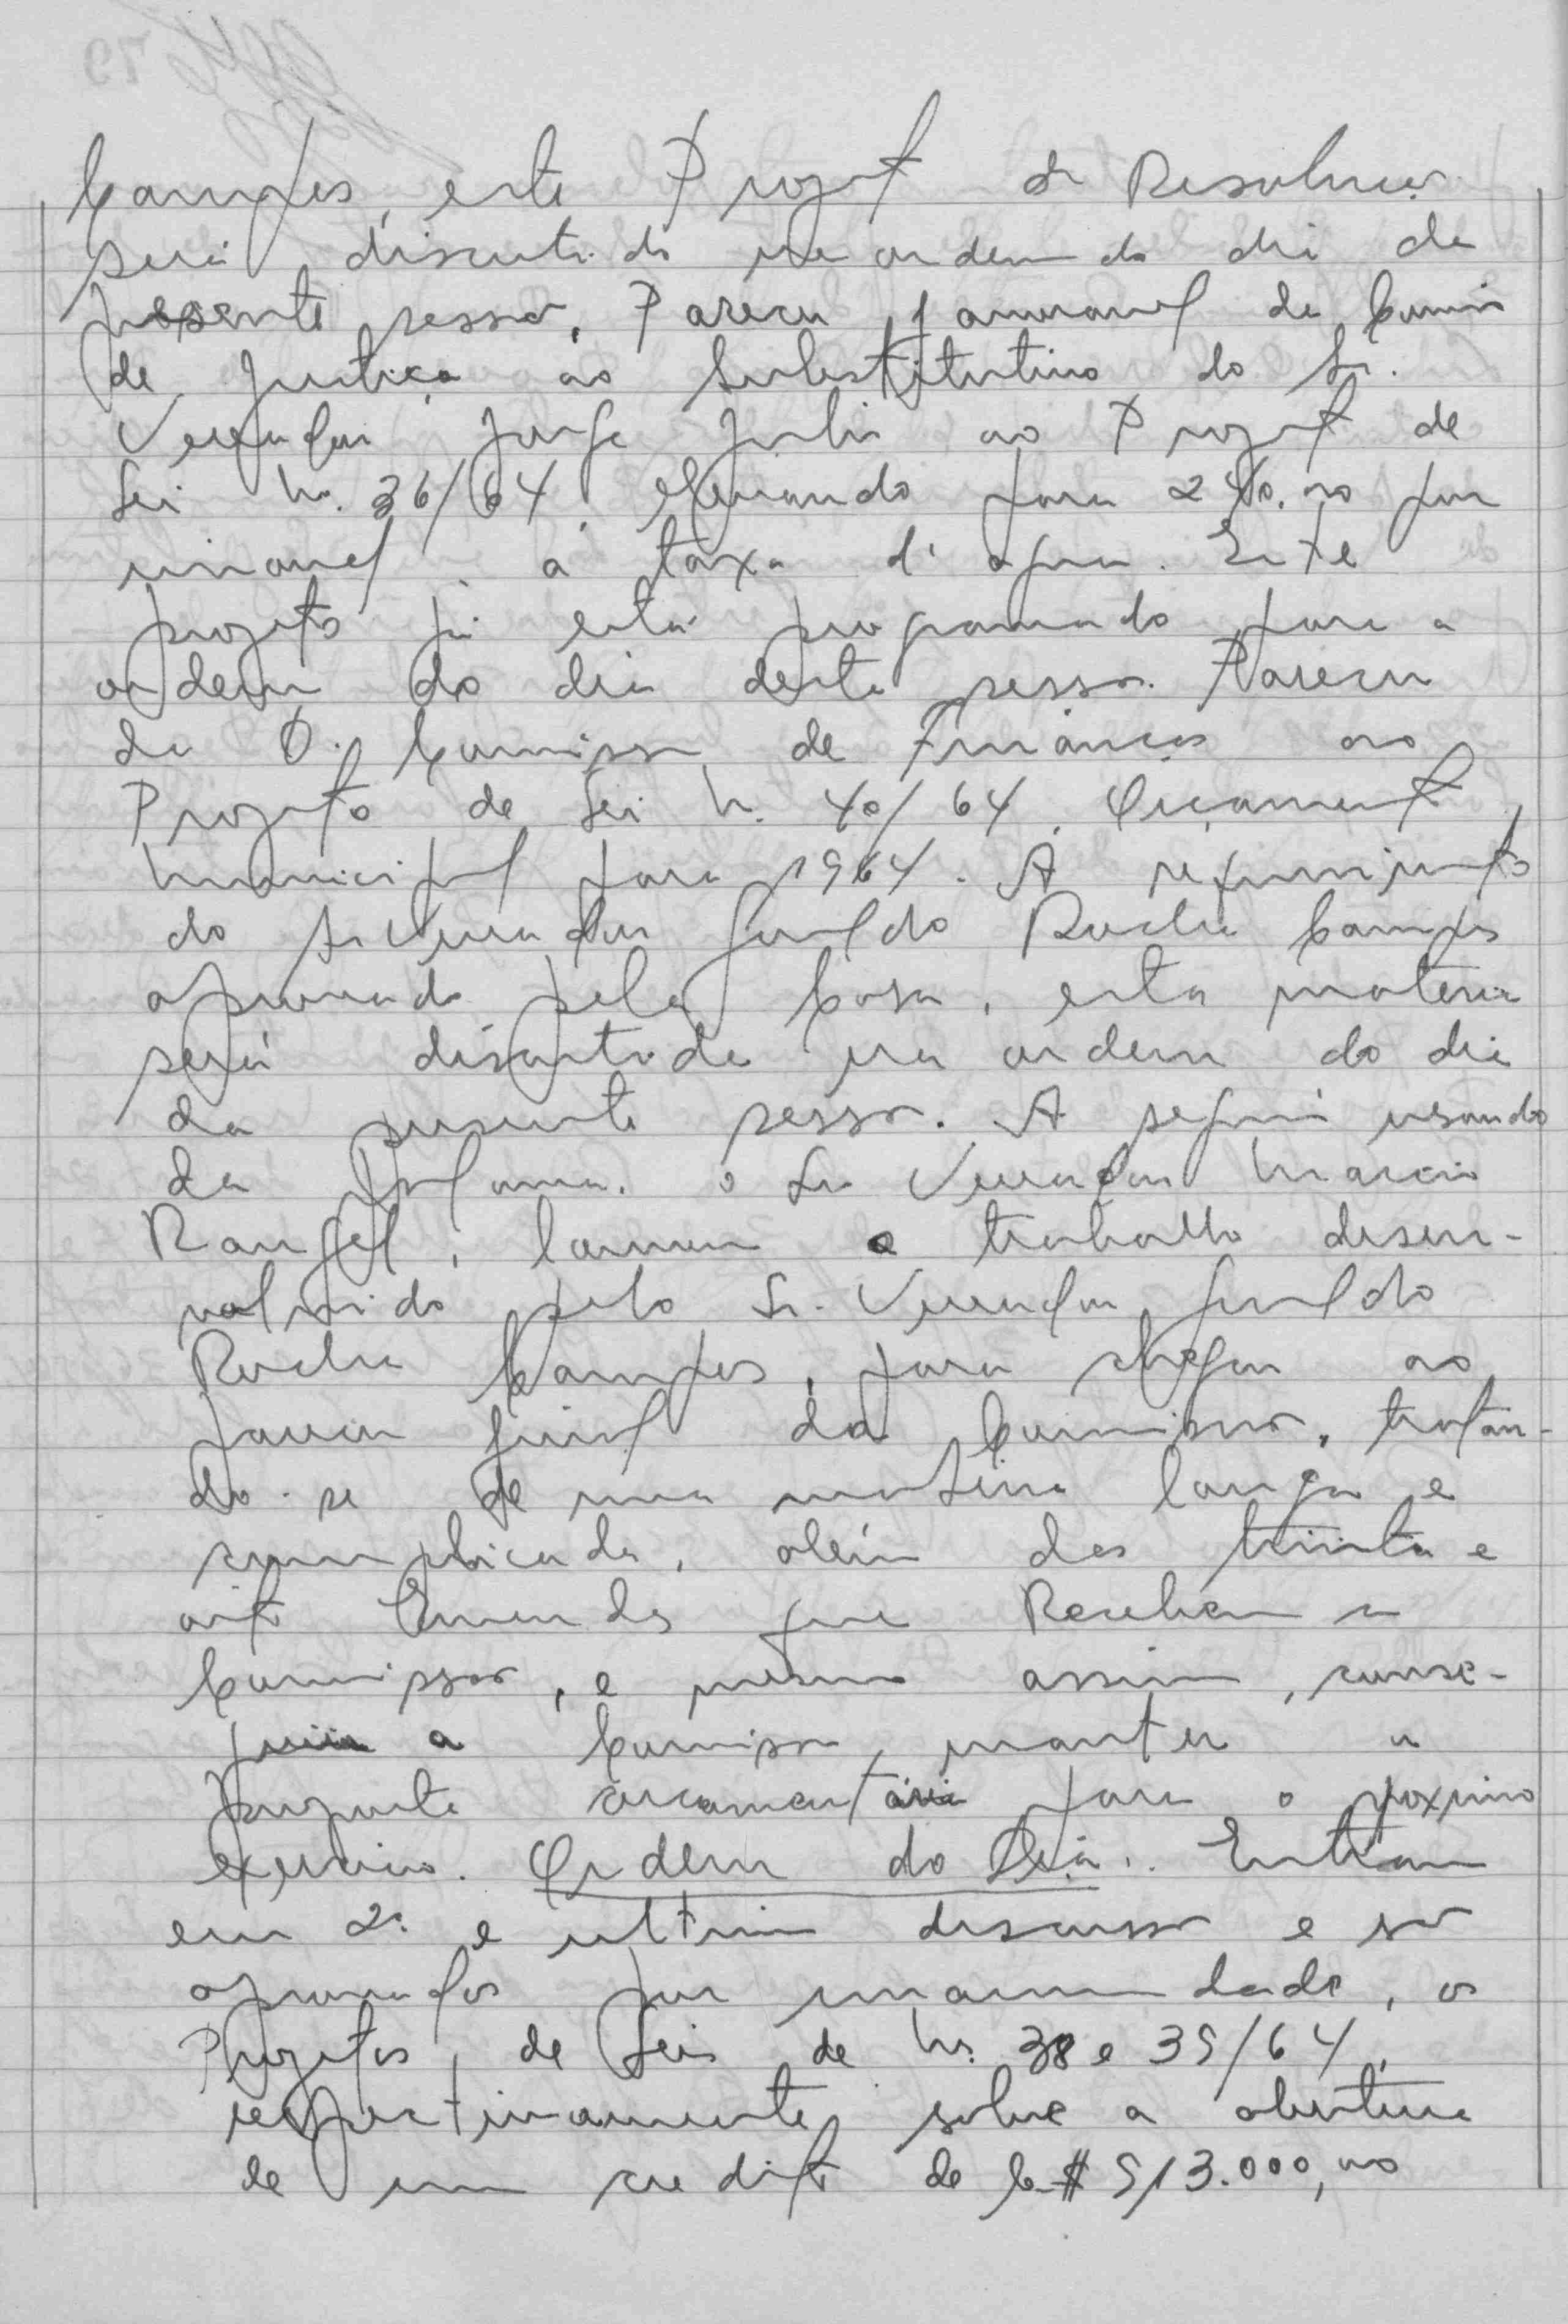 Campos, este Projeto de Resolução
será discutido na ordem do dia da
presente sessão. Parecer favoravel da Comissão
de Justiça ao Substitutivo do Sr.
Vereador Jorge Julio ao Projeto de
Lei Nº. 36/64, elevando para 240,00 por
imovel, a taxa d'agua. Este
projeto já está programado para a
ordem do dia desta sessão. Parecer
da D. Comissão de Finanças ao
Projeto de Lei Nº. 40/64, Orçamento
Municipal para 1964. A requerimento
do Sr Vereador Geraldo Rocha Campos
aprovado pela Casa, esta materia
será discutida na ordem do dia
da presente sessão. A seguir usando
da Palavra, o Sr Vereador Marcio
Rangel, louvou o trabalho desen-
volvido pelo Sr. Vereador Geraldo
Rocha Campos, para chegar ao
parecer final da Comissão, tratan-
do-se de uma materia longa e
complicada, além das trinta e
oito Emendas que Recebeu a
Comissão, e mesmo assim, conse-
guiu a Comissão, manter a
proposta orçamentária para o proximo
exercicio. Ordem do Dia.. Entram
em 2ª e ultima discussão e são
aprovados por unanimidade, os
Projetos, de Leis de Nºs. 38 e 39/64,
respectivamente, sobre a abertura
de um credito de Cr$ 913.000,00